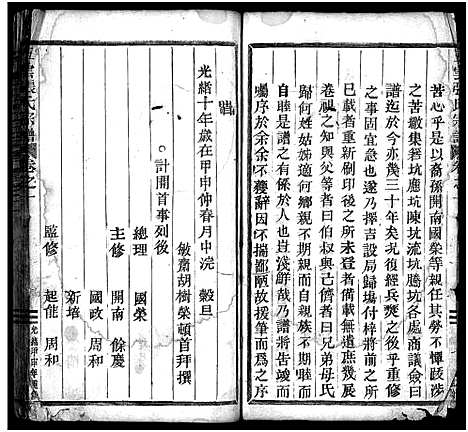 苦心乎是以裔孫開南國榮等親任其勞不憚跋涉
之苦徽集箬坑歷坑陳坑流坑鵬坑各處商議僉曰
譜迄於今亦幾三十年矣況復經兵燹之後乎重修
之事固宜急也遂乃擇吉設局歸塲付梓將前之所
已載者重新刷印後之所未登者備載無遺庶幾展
卷視之知與父等者曰伯叔與己儕者曰兄弟母氏
歸何姓姑姊適何鄉親不期親而自親族不期睦而
自睦是譜之有係於人也豈淺鮮哉乃譜將告竣而
囑序於余余不獲辭因不揣鄙陋故援筆而為之序
光緒十年歲在甲申仲春月中浣 穀旦
敏齋胡樹榮頓首拜撰
計開首事列後
總理 國榮
主修 開南 餘慶
國政 周和
新培
監修 起龍 周和